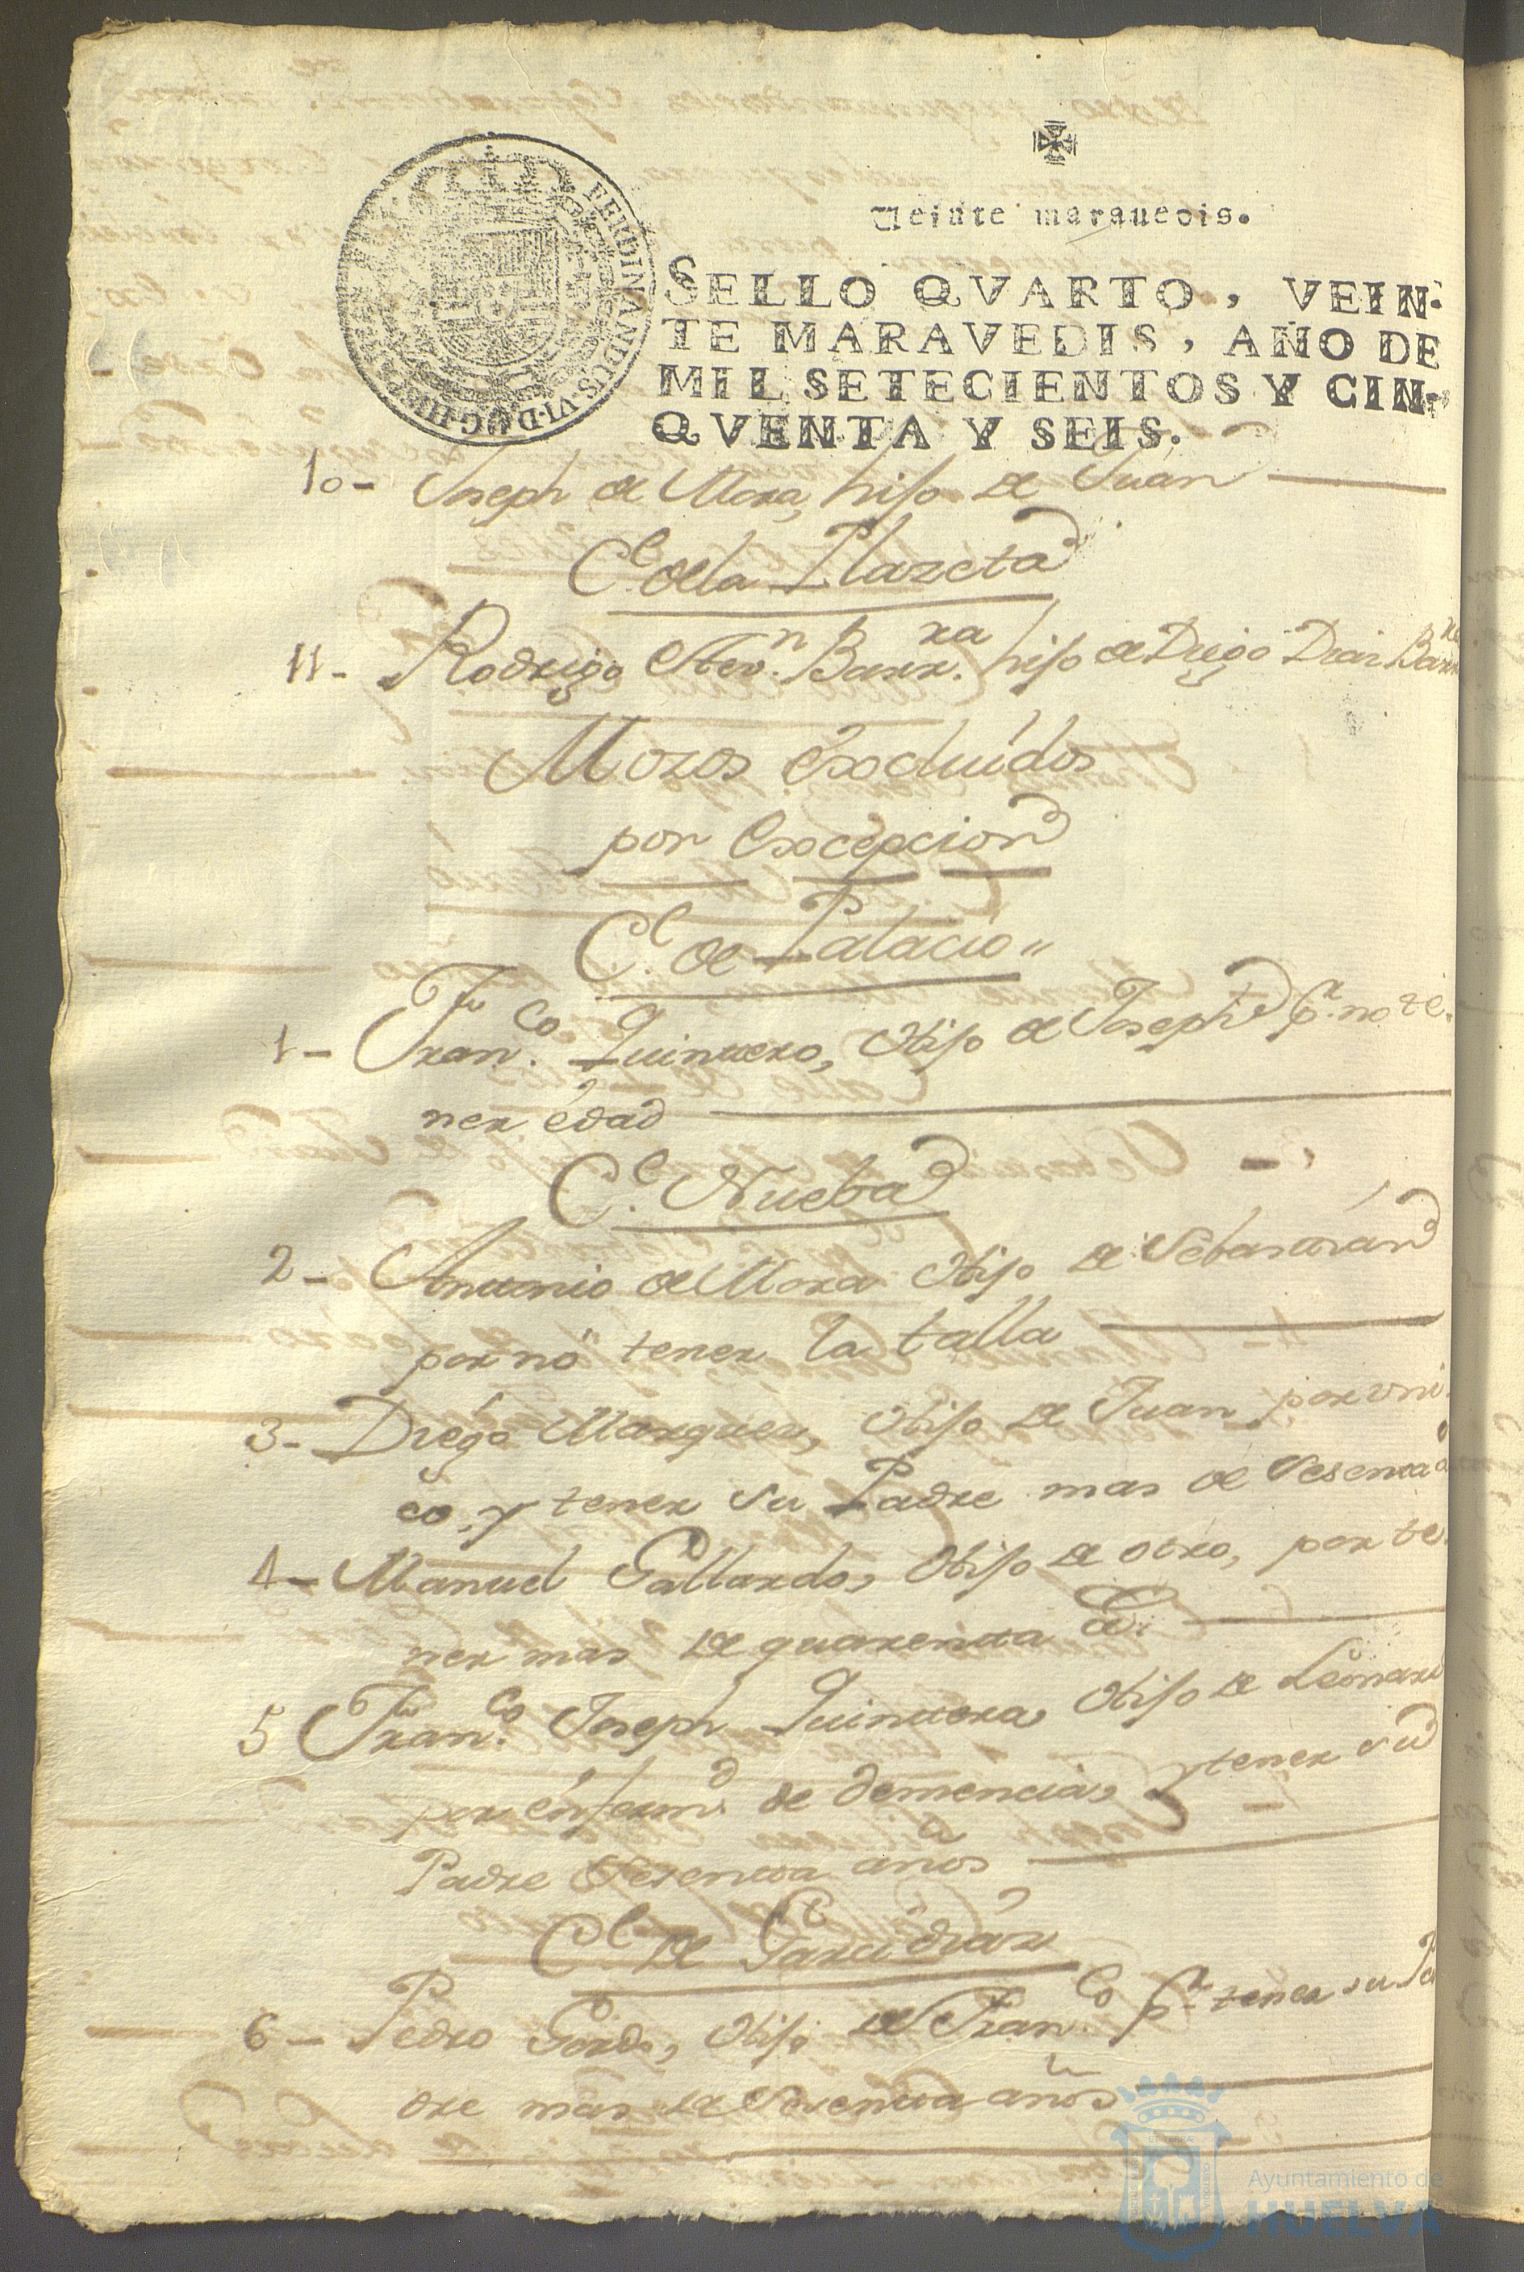 Veinte maravedis.
SELLO QVARTO, VEIN-
TE MARAVEDIS, AÑO DE
MIL SETECIENTOS Y CIN-
QVENTA Y SEIS.
FERDINANDUS·VI·D·G·HISPANIAR
10- Joseph de Mora, hijo de Juan
C.e de la Plazeta
11- Rodrigo Barr.ra hijo de Diego Diaz
Mozos excluídos
por excepcion
C.e de Palacio
1- Fran.co Quintero, Hijo de Joseph p.r no te-
ner edad
C.e Nueba
2- Antonio de Mora Hijo de Sebastián
por no tener la talla
3- Diego Marquez, Hijo de Juan por vni-
co, y tener su Padre mas de Sesenta a
4- Manuel Gallardo, Hijo de otro, por te-
ner mas de quarenta a.
5 Fran.co Joseph Quintero, Hijo de Leonard
por enferm.d de demencia, y tener su
Padre Sesenta años
C.e de Garcidiaz
6- Pedro Gordo, Hijo de Fran.co p.r tener su Pa
dre mas de Sesenta años
Ayuntamiento de
HUELVA